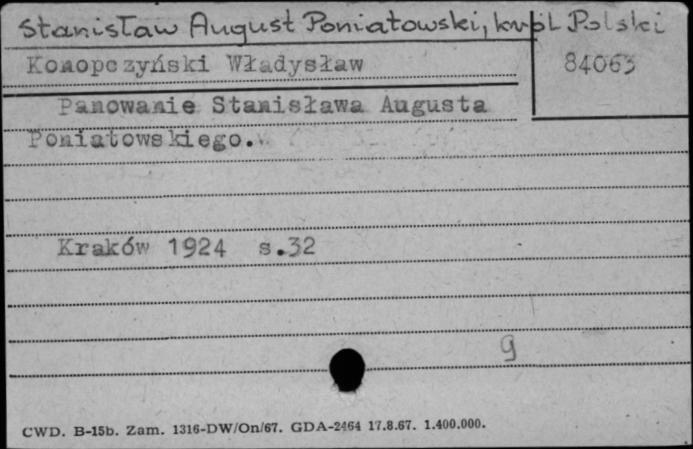 Stanisław August Poniatowski, król Polski
Konopczyński Władysław
84063
Panowanie Stanisława Augusta
Poniatowskiego.
Kraków 1924 s.32
9
CWD. B-15b. Zam. 1316-DW/On/67. GDA-2464 17.8.67. 1.400.000.